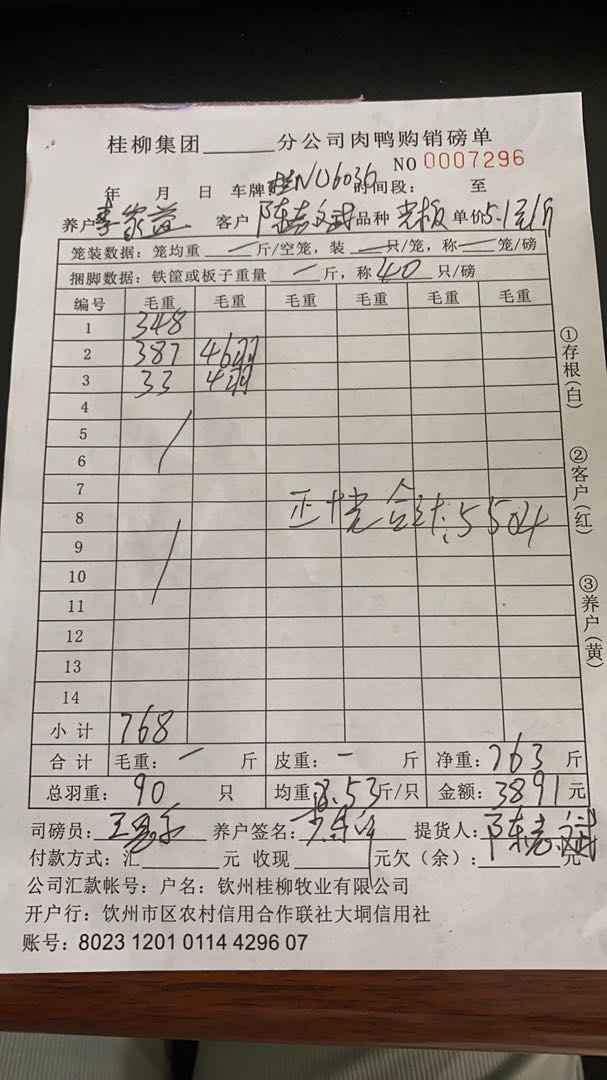 桂柳集团______分公司肉鸭购销磅单
NO 0007296
年 月 日 车牌 桂NU6036 时间段： 至
养户 李家益 客户 陈志文 品种 光板 单价 5.1元/斤
笼装数据：笼均重 — 斤/空笼，装 — 只/笼，称 — 笼/磅
捆脚数据：铁筐或板子重量 — 斤，称 40 只/磅
编号 毛重 毛重 毛重 毛重 毛重 毛重
1 348
2 387 46羽
3 33 4羽
4
5
6
7
8 合计：5504
9
10
11
12
13
14
小计 768
合计 毛重： — 斤 皮重： — 斤 净重：763 斤
总羽重： 90 只 均重：8.53 斤/只 金额：3891 元
司磅员： 养户签名： 提货人：陈志
付款方式：汇______元 收现______元欠（余）：______元
公司汇款帐号：户名：钦州桂柳牧业有限公司
开户行：钦州市区农村信用合作联社大垌信用社
账号：8023 1201 0114 4296 07
①存根（白）
②客户（红）
③养户（黄）